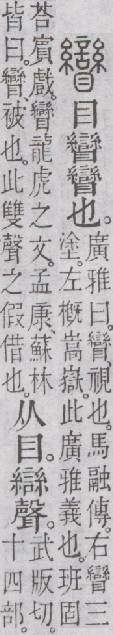 矕目矕矕也。
廣雅曰。矕視也。馬融傳。右矕三
塗。左概嵩嶽。此廣雅義也。班固
荅賓戲矕龍虎之文。孟康蘇林
皆曰。矕被也。此雙聲之假借也。
从目。䜌聲。
武版切。
十四部。